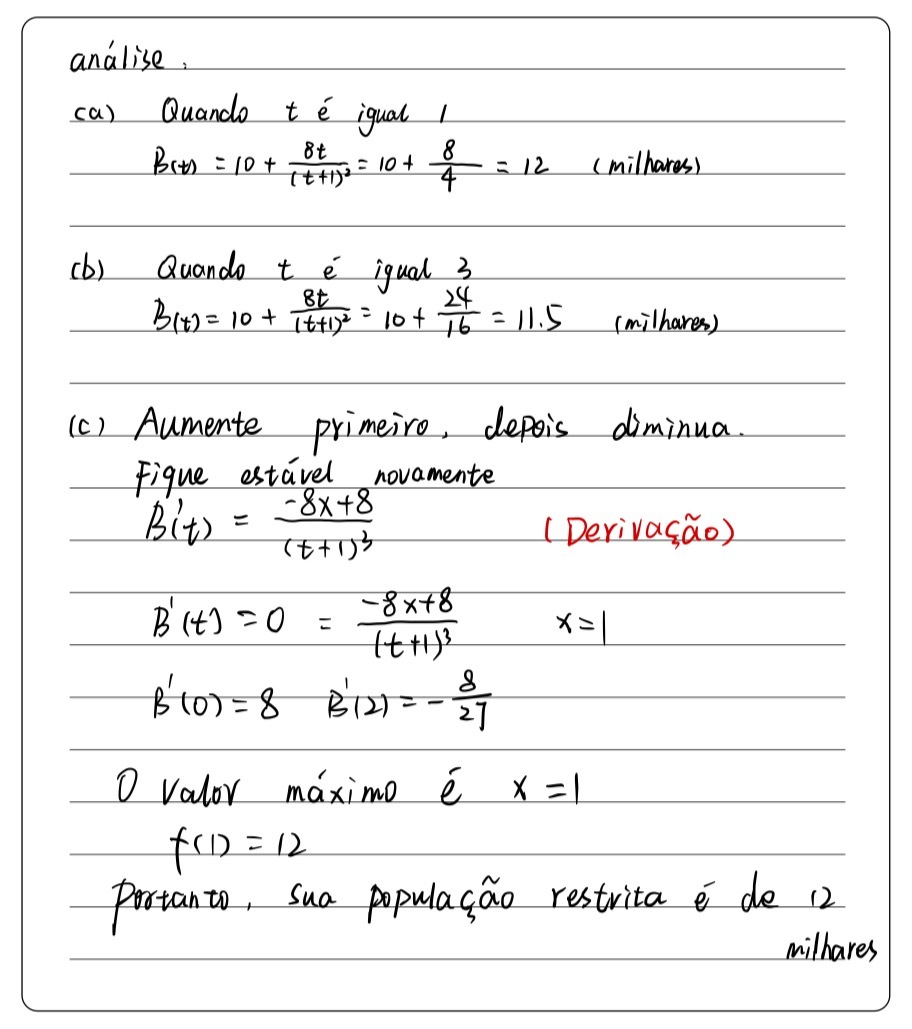 análise.
(a) Quando t é igual 1
B(t) = 10 + 8t/(t+1)² = 10 + 8/4 = 12 (milhares)
(b) Quando t é igual 3
B(t) = 10 + 8t/(t+1)² = 10 + 24/16 = 11.5 (milhares)
(c) Aumente primeiro, depois diminua.
Fique estável novamente
B'(t) = -8x+8/(t+1)³ (Derivação)
B'(t) = 0 = -8x+8/(t+1)³ x=1
B'(0) = 8 B'(2) = -8/27
O valor máximo é x=1
f(1) = 12
Portanto, sua população restrita é de 12
milhares